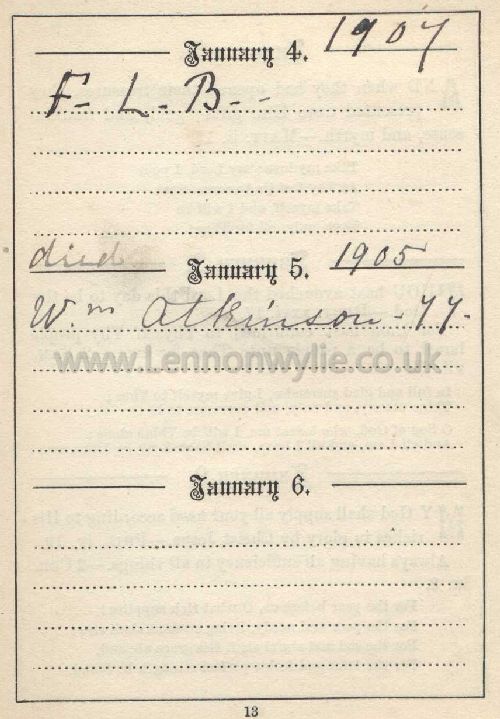 January 4. 1907
F- L- B- -
died January 5. 1905
Wm Atkinson - 77-
www.Lennonwylie.co.uk
January 6.
13